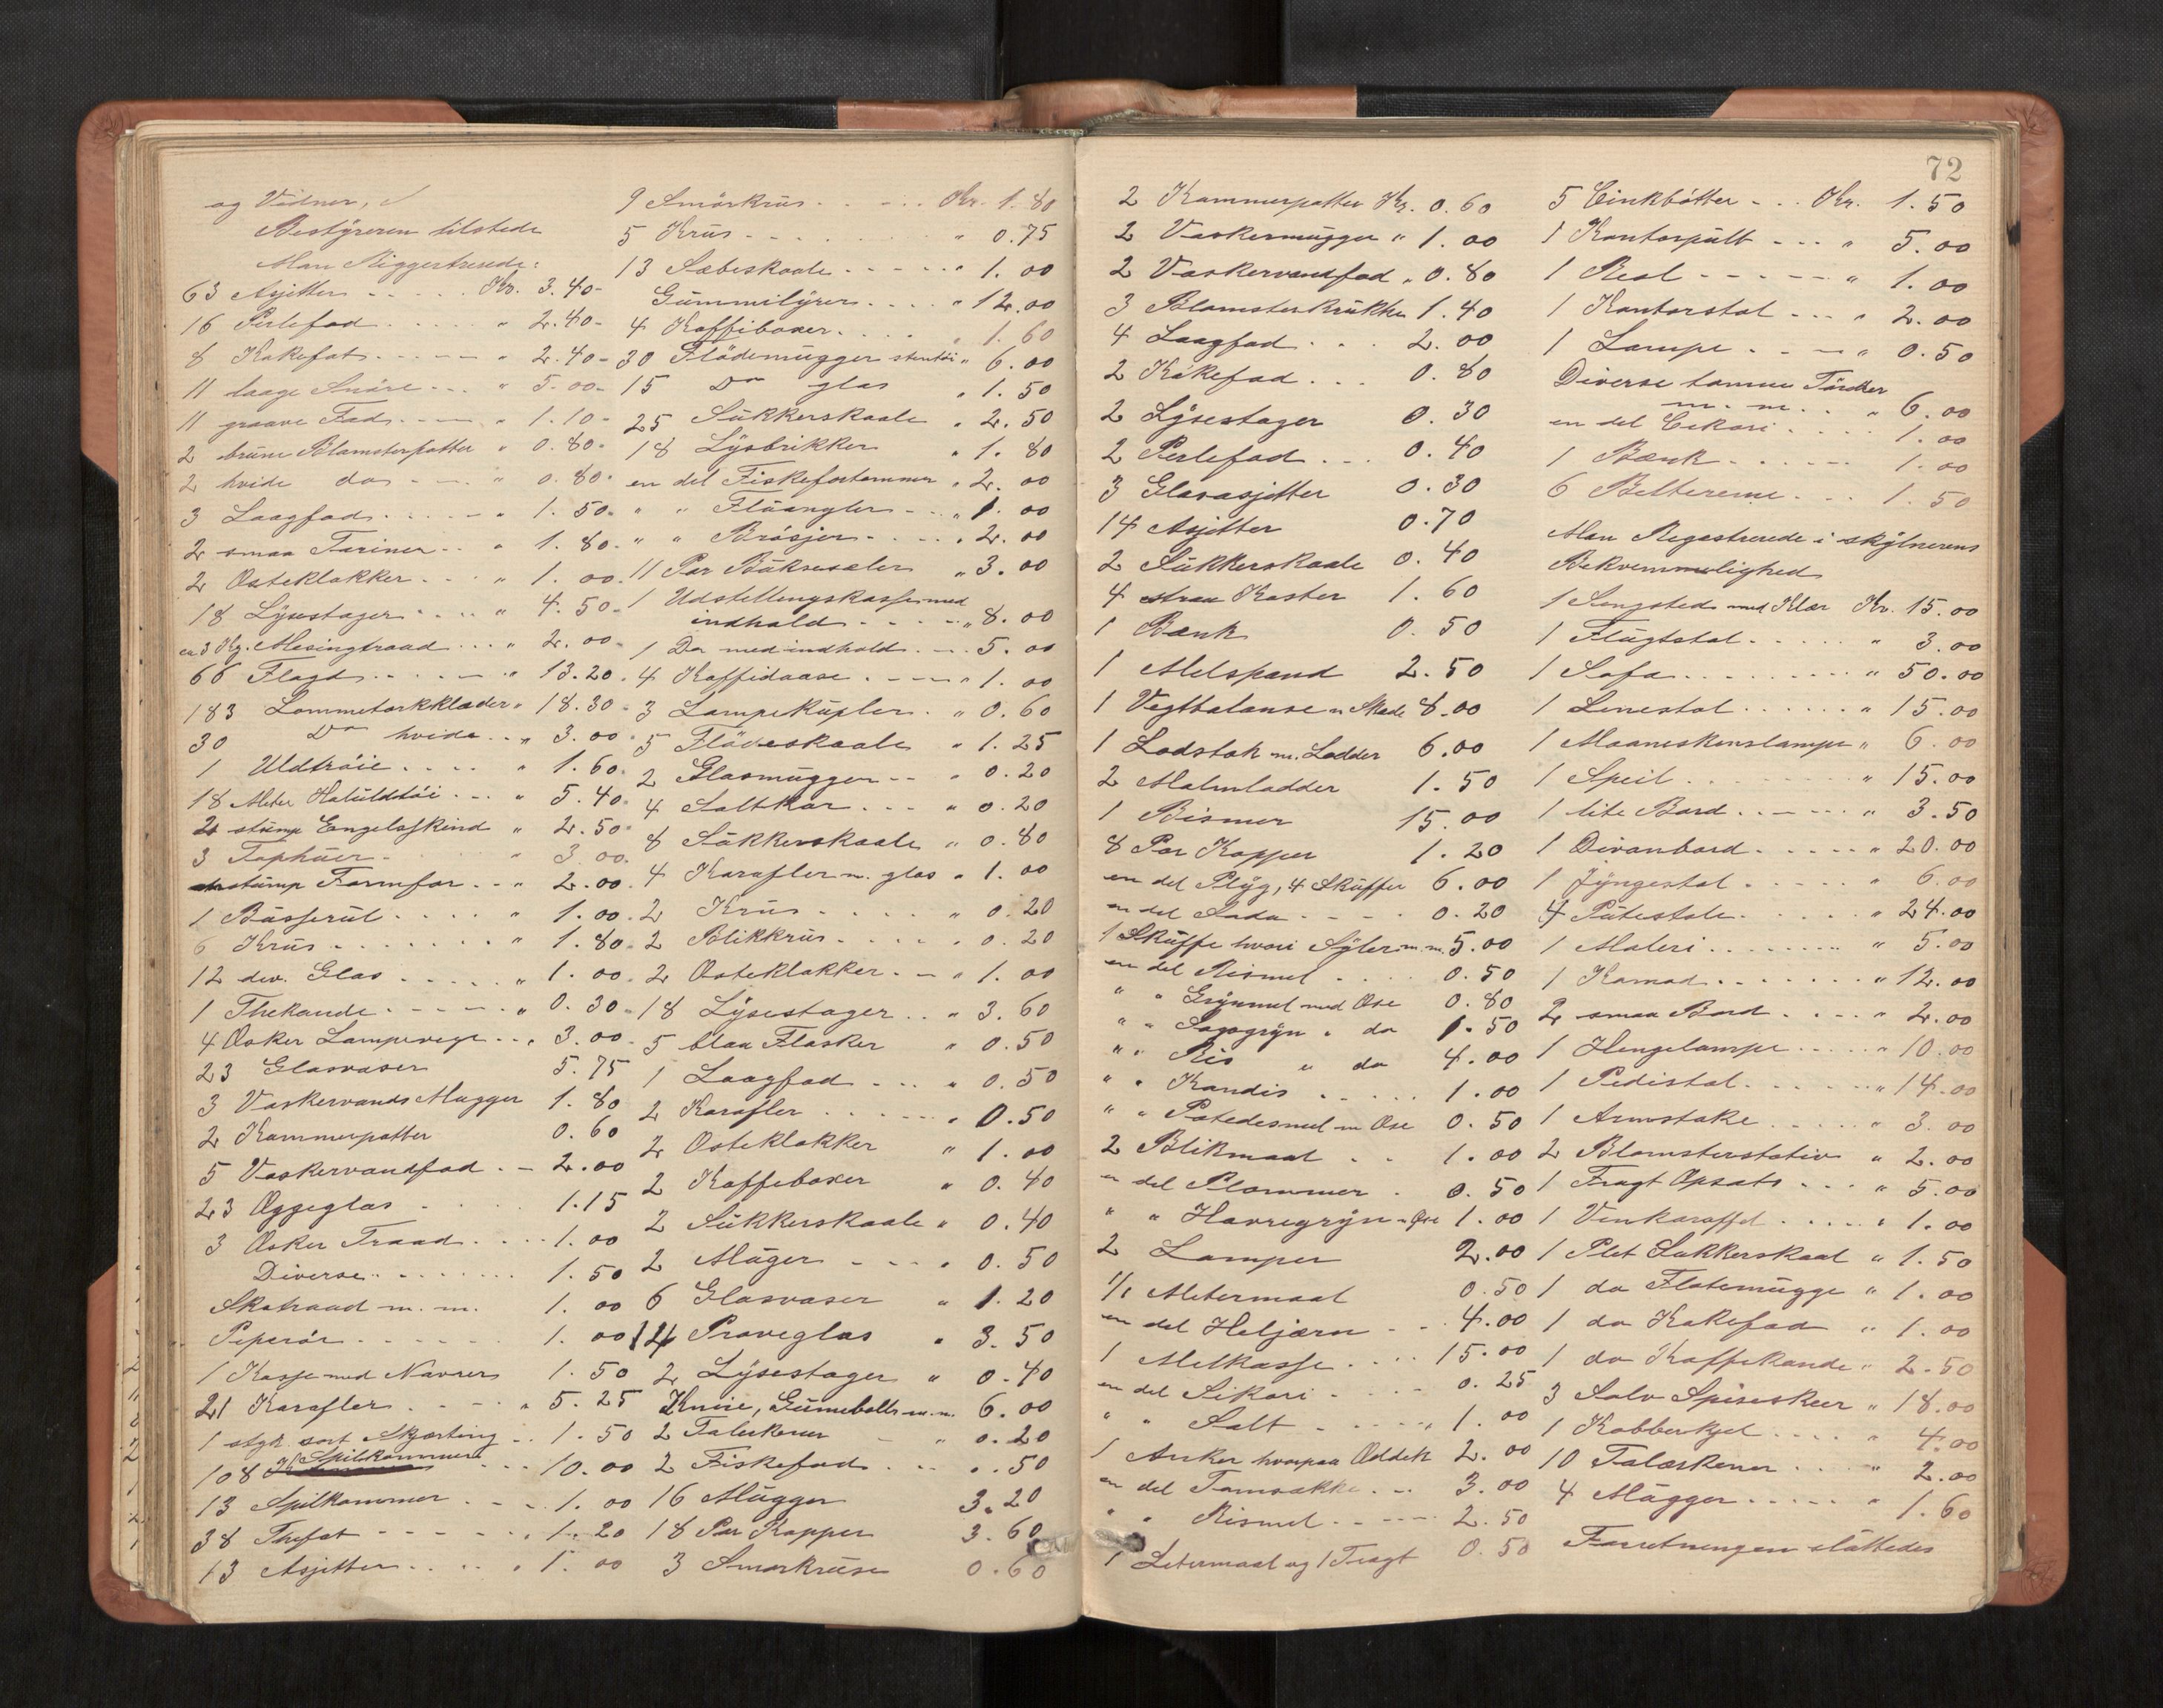 og Vidner,
Bestÿreren tilstede
Man Riggestrerede:
63 Asjitter ..... Kr. 3.40-
16 Perlefad ..... " 2.40-
8 Kakefat ..... " 2.40-
11 laage Snöre ... " 5.00-
11 graave Fad ..... " 1.10-
2 brune Blamsterpatter " 0.80-
2 hvide do ... " 0.80-
3 Laagfad ..... " 1.50-
2 smaa Tariner ... " 1.80-
2 Osteklakker ... " 1.00.
18 Lÿsestager .... " 4.50-
ca 3 Kg. Mesingtraad ... " 2.00-
66 Flagd ..... " 13.20.
183 Lommetørkklæder " 18.30-
30 Do hvide .. " 3.00.
1 Uldtröie .... " 1.60.
18 Meter Halvuldtöi ... " 5.40.
2 stump Engelsskind " 2.50-
3 Tophuer . " 3.00.
stump Farmfor ... " 2.00.
1 Busserul .... " 1.00.
6 Krus ....... " 1.80.
12 div. Glas ..... " 1.00.
1 Thekande ..... " 0.30-
4 Æsker Lampevege ... " 3.00-
23 Glasvaser 5.75
3 Vaskervands Mugger 1.80
2 Kammerpatter 0.60
5 Vaskervandfad .. - 2.00
23 Æggeglas ..... 1.15
3 Æsker Traad .... 1.00
Diverse ........ 1.50
Skotraad m. m. 1.00
Peperör ...... 1.00
1 Kasse med Navrer 1.50
21 Karafler .... " 5.25
1 stgk sort Skjærting .. 1.50
108 Spilkommer ... 10.00
13 Spilkommer .... 1.00
38 Thefat ..... " 1.20
13 Asjitter ..... " 1.00
9 Smörkrus ..... Kr. 1.80
5 Krus ...... " 0.75
13 Sæbeskaale ..... " 1.00
Gummilÿrer .... " 12.00
4 Kaffiboxer .... " 1.60
30 Flödemugger stentöi " 6.00
15 Do glas " 1.50
25 Sukkerskaale " 2.50
18 Lÿsbrikker " 1.80
en del Fiskefortammer " 2.00
" " Flüangler ... " 1.00
" " Brösjer .... " 2.00
11 Par Bukseseler " 3.00
1 Udstellingskasse med
indhold ..... " 8.00
1 Do med indhold ... 5.00
4 Kaffidaase .... " 1.00
3 Lampekupler . " 0.60
5 Flödeskaale " 1.25
2 Glasmugger .. " 0.20
4 Saltkar ... " 0.20
8 Sukkerskaale " 0.80
4 Karafler m. glas " 1.00
2 Krus ..... " 0.20
2 Blikkrus .... " 0.20
2 Osteklakker ... " 1.00
18 Lÿsestager ... " 3.60
5 blaa Flasker " 0.50
1 Laagfad ... " 0.50
2 Karafler ...... " 0.50
2 Osteklakker " 1.00
2 Kaffeboxer " 0.40
2 Sukkerskaale " 0.40
2 Muger .... " 0.50
6 Glasvaser " 1.20
14 Prøveglas " 3.50
2 Lÿsestager " 0.40
Knive, Gumebolt m.m. 6.00
2 Talerkener - " 0.20
2 Fiskefad .... .50
16 Mugger 3.20
18 Par Kopper 3.60
3 Smørkruse 0.60
72
2 Kammerpatter Kr. 0.60
2 Vaskermugger " 1.00
2 Vaskervandfad " 0.80
3 Blamsterkrukker 1.40
4 Laagfad ... 2.00
2 Kakefad ... 0.80
2 Lÿsestager 0.30
2 Perlefad ... 0.40
3 Glasasjetter 0.30
14 Asjitter 0.70
2 Sukkerskaale 0.40
4 straa Koster 1.60
1 Bænk 0.50
1 Melspand 2.50
1 Vegtbalanse m Skade 8.00
1 Lodstok m. Lodder 6.00
2 Malmlodder 1.50
1 Bismer 15.00
8 Par Kopper 1.20
en del Plÿg, 4 Skuffer 6.00
en del Soda .... 0.20
1 Skuffe hvori Sÿler m.m. 5.00
en del Rismel .... 0.50
" " Grÿnmel med Øse 0.80
" " Sagogrÿn " do 1.50
" " Ris " do 4.00
" " Kandis ..... 1.00
" " Potedesmel m Øse 0.50
2 Blikmaal .. 1.00
en del Plommer . 0.50
" " Havregrÿn m Øse 1.00
2 Lamper 2.00
1/1 Metermaal 0.50
en del Heljærn .. 4.00
1 Melkasse .... 15.00
en del Sikori .... 0.25
" " Salt ..... " 1.00
1 Anker hvorpaa Eddek 2.00
en del Tomsække ... 3.00
" " Rismel ..... 2.50
1 Letermaal og 1 Tragt 0.50
5 Cinkbötter ... Kr. 1.50
1 Kontorpult ... " 5.00
1 Reol ..... " 1.00
1 Kontorstol ... " 2.00
1 Lampe ... " 0.50
Diverse tomme Tönder
m. m. .. " 6.00
en del Cekori .... 1.00
1 Bænk ..... 1.00
6 Beltereme ... 1.50
Man Regestrerede i skÿlnerens
Bekvemmelighed
1 Sengsted med Klær Kr. 15.00
1 Flugtstol ..... " 3.00
1 Sofa ........ " 50.00
1 Lenestol ...... " 15.00
1 Maaneskenslampe " 6.00
1 Speil ....... " 15.00
1 lite Bord ..... " 3.50
1 Divanbord ..... " 20.00
1 Gÿngestol ..... " 6.00
4 Putestole ..... " 24.00
1 Maleri ....... " 5.00
1 Kamod ...... " 12.00
2 smaa Bord .... " 2.00
1 Hengelampe .... " 10.00
1 Pedistal ...... " 14.00
1 Armstake ..... " 3.00
2 Blomsterstativ " 2.00
1 Frugt Opsats ... " 5.00
1 Vinkaraffel ..... " 1.00
1 Plet Sukkerskaal " 1.50
1 do Fløtemugge " 1.00
1 do Kakefad " 1.00
1 do Kaffekande " 2.50
3 Sølv Spiseskeer " 18.00
1 Kobberkjel .... " 4.00
10 Talærkener ... " 2.00
4 Mugger ..... " 1.60
Forretningen sluttedes